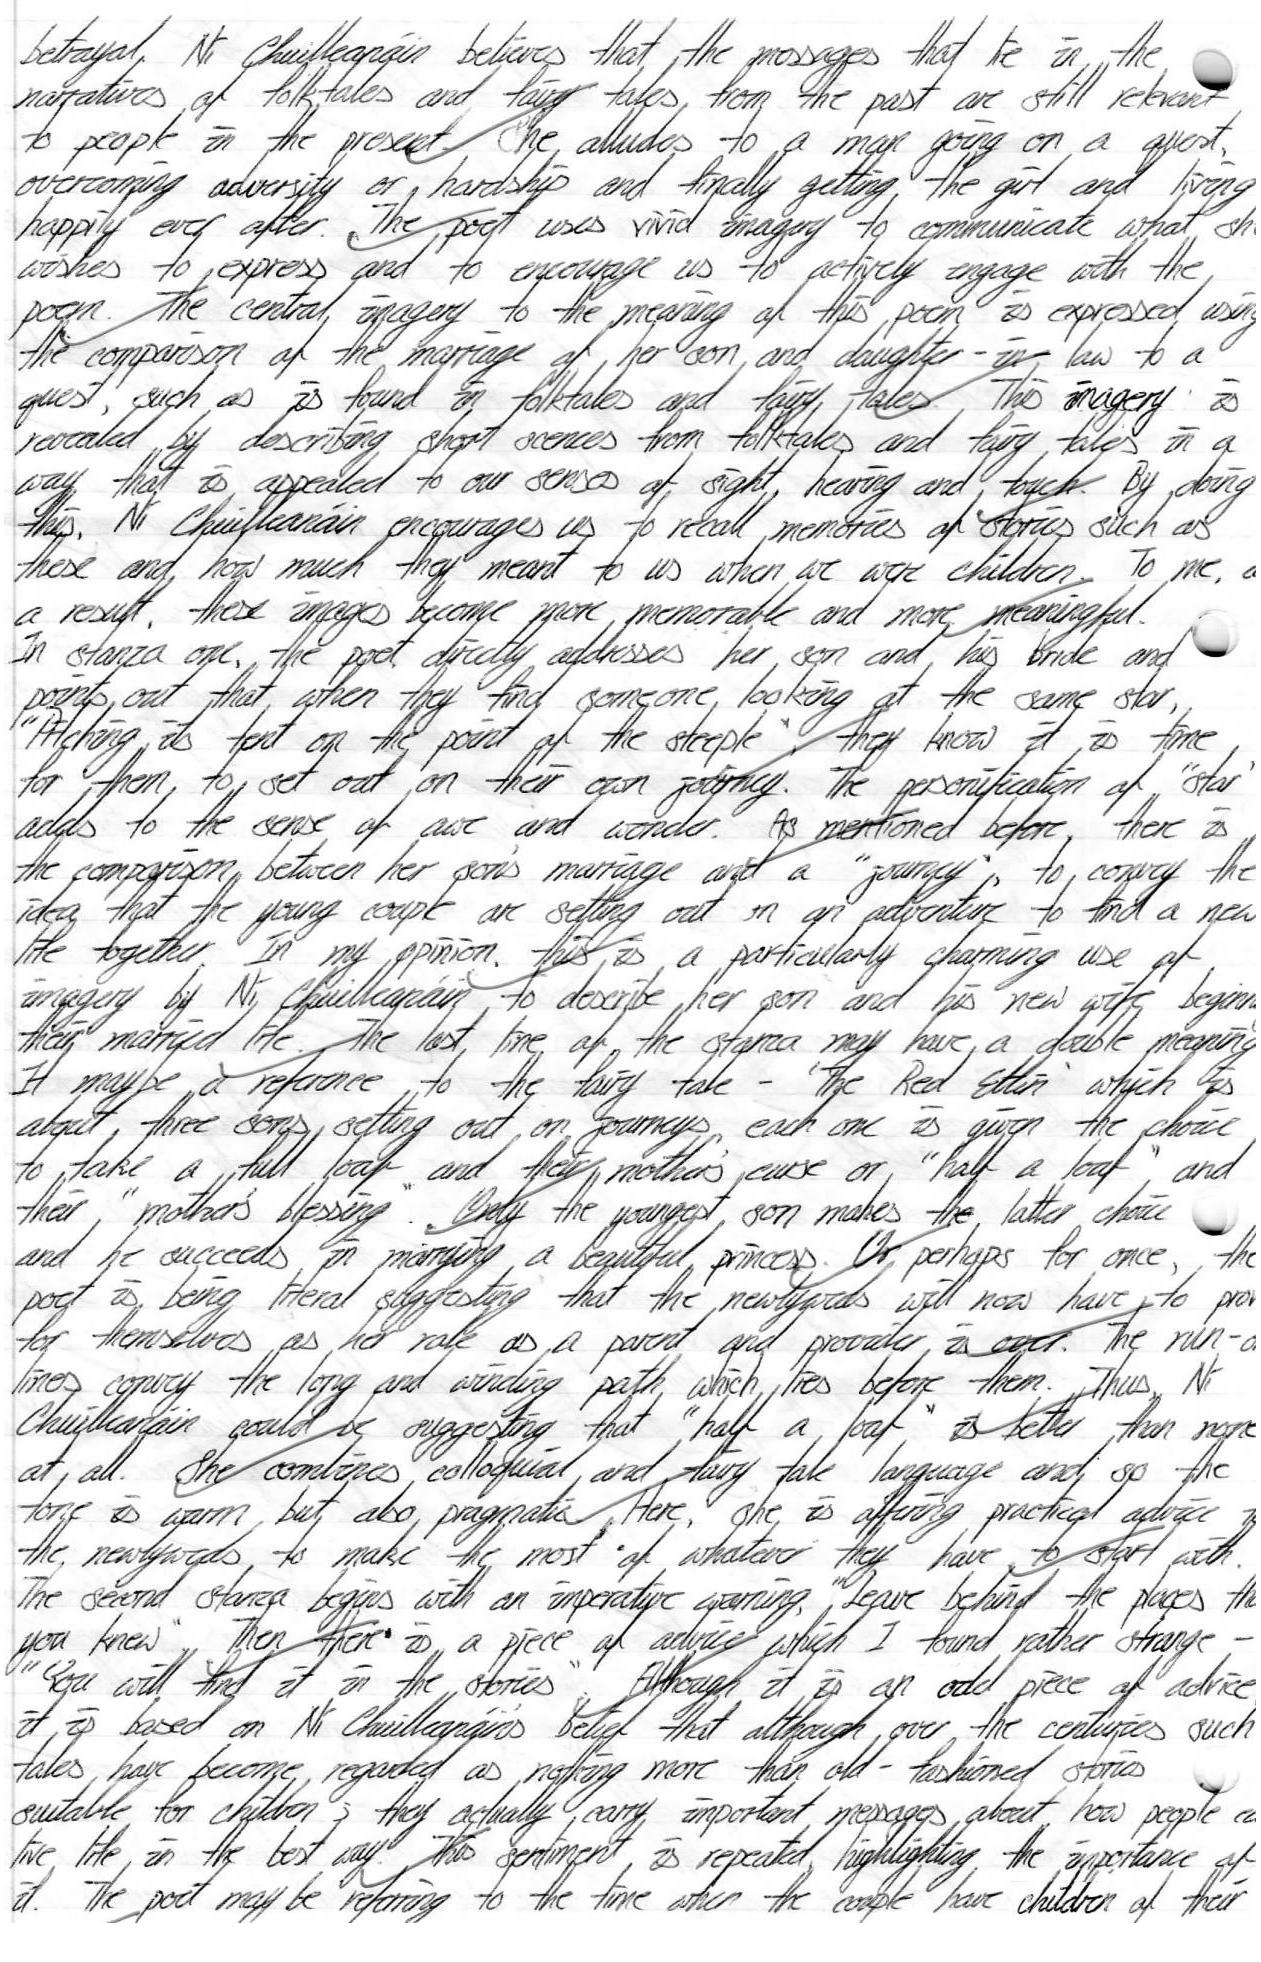 betrayal. Ní Chuilleanáin believes that the messages that lie in the
narratives of folktales and fairy tales from the past are still relevant
to people in the present. She alludes to a man going on a quest,
overcoming adversity or hardship and finally getting the girl and living
happily ever after. The poet uses vivid imagery to communicate what sh
wishes to express and to encourage us to actively engage with the
poem. The central imagery to the meaning of this poem is expressed using
the comparison of the marriage of her son and daughter-in law to a
quest, such as is found in folktales and fairy tales. This imagery is
revealed by describing short scences from folktales and fairy tales in a
way that is appealed to our senses of sight, hearing and touch. By doing
this, Ní Chuilleanáin encourages us to recall memories of stories such as
these and how much they meant to us when we were children. To me, a
a result, these images become more memorable and more meaningful.
In stanza one, the poet directly addresses her son and his bride and
points out that when they find someone looking at the same star,
"Pitching its tent on the point of the steeple", they know it is time
for them to set out on their own journey. The personification of "star"
adds to the sense of awe and wonder. As mentioned before, there is
the comparison between her son's marriage and a "journey", to convey the
idea that the young couple are setting out on an adventure to find a new
life together. In my opinion, this is a particularly charming use of
imagery by Ní Chuilleanáin to describe her son and his new wife beginn
their married life. The last line of the stanza may have a double meaning
It maybe a reference to the fairy tale - 'The Red Ettin' which is
about three sons setting out on journeys, each one is given the choice
to take a full loaf and their mother's curse or "half a loaf" and
their "mother's blessing". Only the youngest son makes the latter choice
and he succeeds in marrying a beautiful princess. Or perhaps for once, the
poet is being literal suggesting that the newlyweds will now have to prov
for themselves as her role as a parent and provider is over. The run-o
lines convey the long and winding path which lies before them. Thus, Ní
Chuilleanáin could be suggesting that "half a loaf" is better than none
at all. She combines colloquial and fairy tale language and so the
tone is warm but also pragmatic. Here, she is offering practical advice to
the newlyweds to make the most of whatever they have to start with.
The second stanza begins with an imperative warning, "Leave behind the places tha
you knew". Then there is a piece of advice which I found rather strange -
"You will find it in the stories". Although it is an odd piece of advice
it is based on Ní Chuilleanáin's belief that although over the centuries such
tales have become regarded as nothing more than old-fashioned stories
suitable for children; they actually carry important messages about how people ca
live life in the best way. This sentiment is repeated, highlighting the importance of
it. The poet may be referring to the time when the couple have children of their